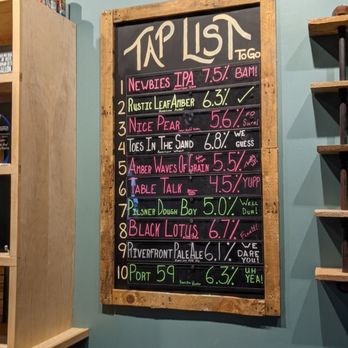 TAP LIST
TO GO
1 NEWBIES IPA 7.5% BAM!
2 RUSTIC LEAF AMBER 6.3% ✓
3 NICE PEAR 5.6%
4 TOES IN THE SAND 6.8% WE GUESS
5 AMBER WAVES OF GRAIN 5.5%
6 TABLE TALK 4.5% YUPP
7 PILSNER DOUGH BOY 5.0% WELL DUH!
8 BLACK LOTUS 6.7%
9 RIVERFRONT PALE ALE 6.1% WE DARE YOU!
10 PORT 59 6.3% UH YEA!